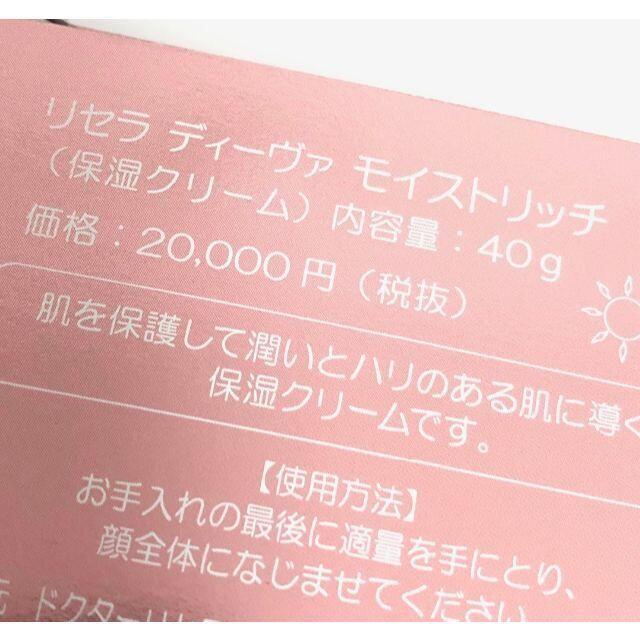 リセラ ディーヴァ モイストリッチ
（保湿クリーム）内容量：40g
価格：20,000円（税抜）
肌を保護して潤いとハリのある肌に導く
保湿クリームです。
【使用方法】
お手入れの最後に適量を手にとり、
顔全体になじませてください
元 ドクターリ